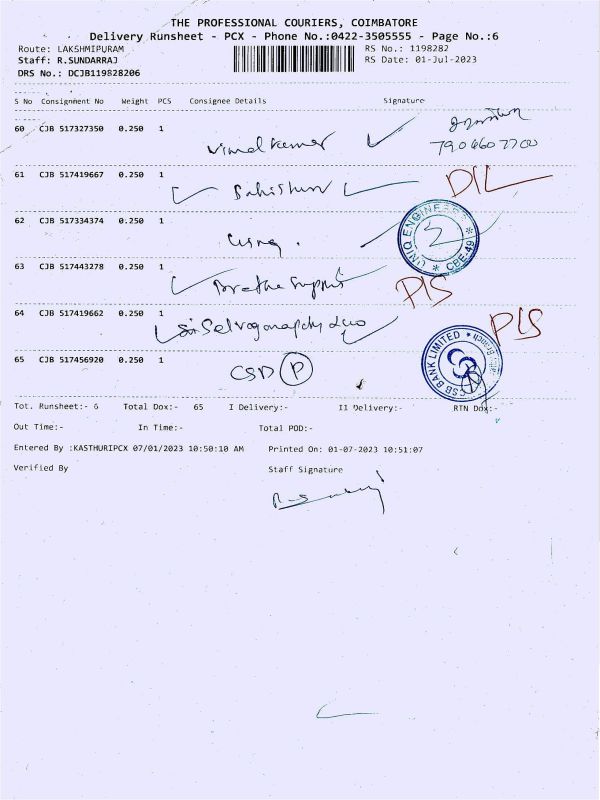 THE PROFESSIONAL COURIERS, COIMBATORE
Delivery Runsheet - PCX - Phone No.:0422-3505555 - Page No.:6
Route: LAKSHMIPURAM RS No.: 1198282
Staff: R.SUNDARRAJ RS Date: 01-Jul-2023
DRS No.: DCJB119828206
S No Consignment No Weight PCS Consignee Details Signature
60 CJB 517327350 0.250 1
Vimal Kumar
61 CJB 517419667 0.250 1
D/L
62 CJB 517334374 0.250 1
UNIQ ENGINEERS * CBE-49 *
63 CJB 517443278 0.250 1
P/S
64 CJB 517419662 0.250 1
P/S
65 CJB 517456920 0.250 1
CSD P
CSB BANK LIMITED * Branch
Tot. Runsheet:- 6 Total Dox:- 65 I Delivery:- II Delivery:- RTN Dox:-
Out Time:- In Time:- Total POD:-
Entered By :KASTHURIPCX 07/01/2023 10:50:10 AM Printed On: 01-07-2023 10:51:07
Verified By Staff Signature